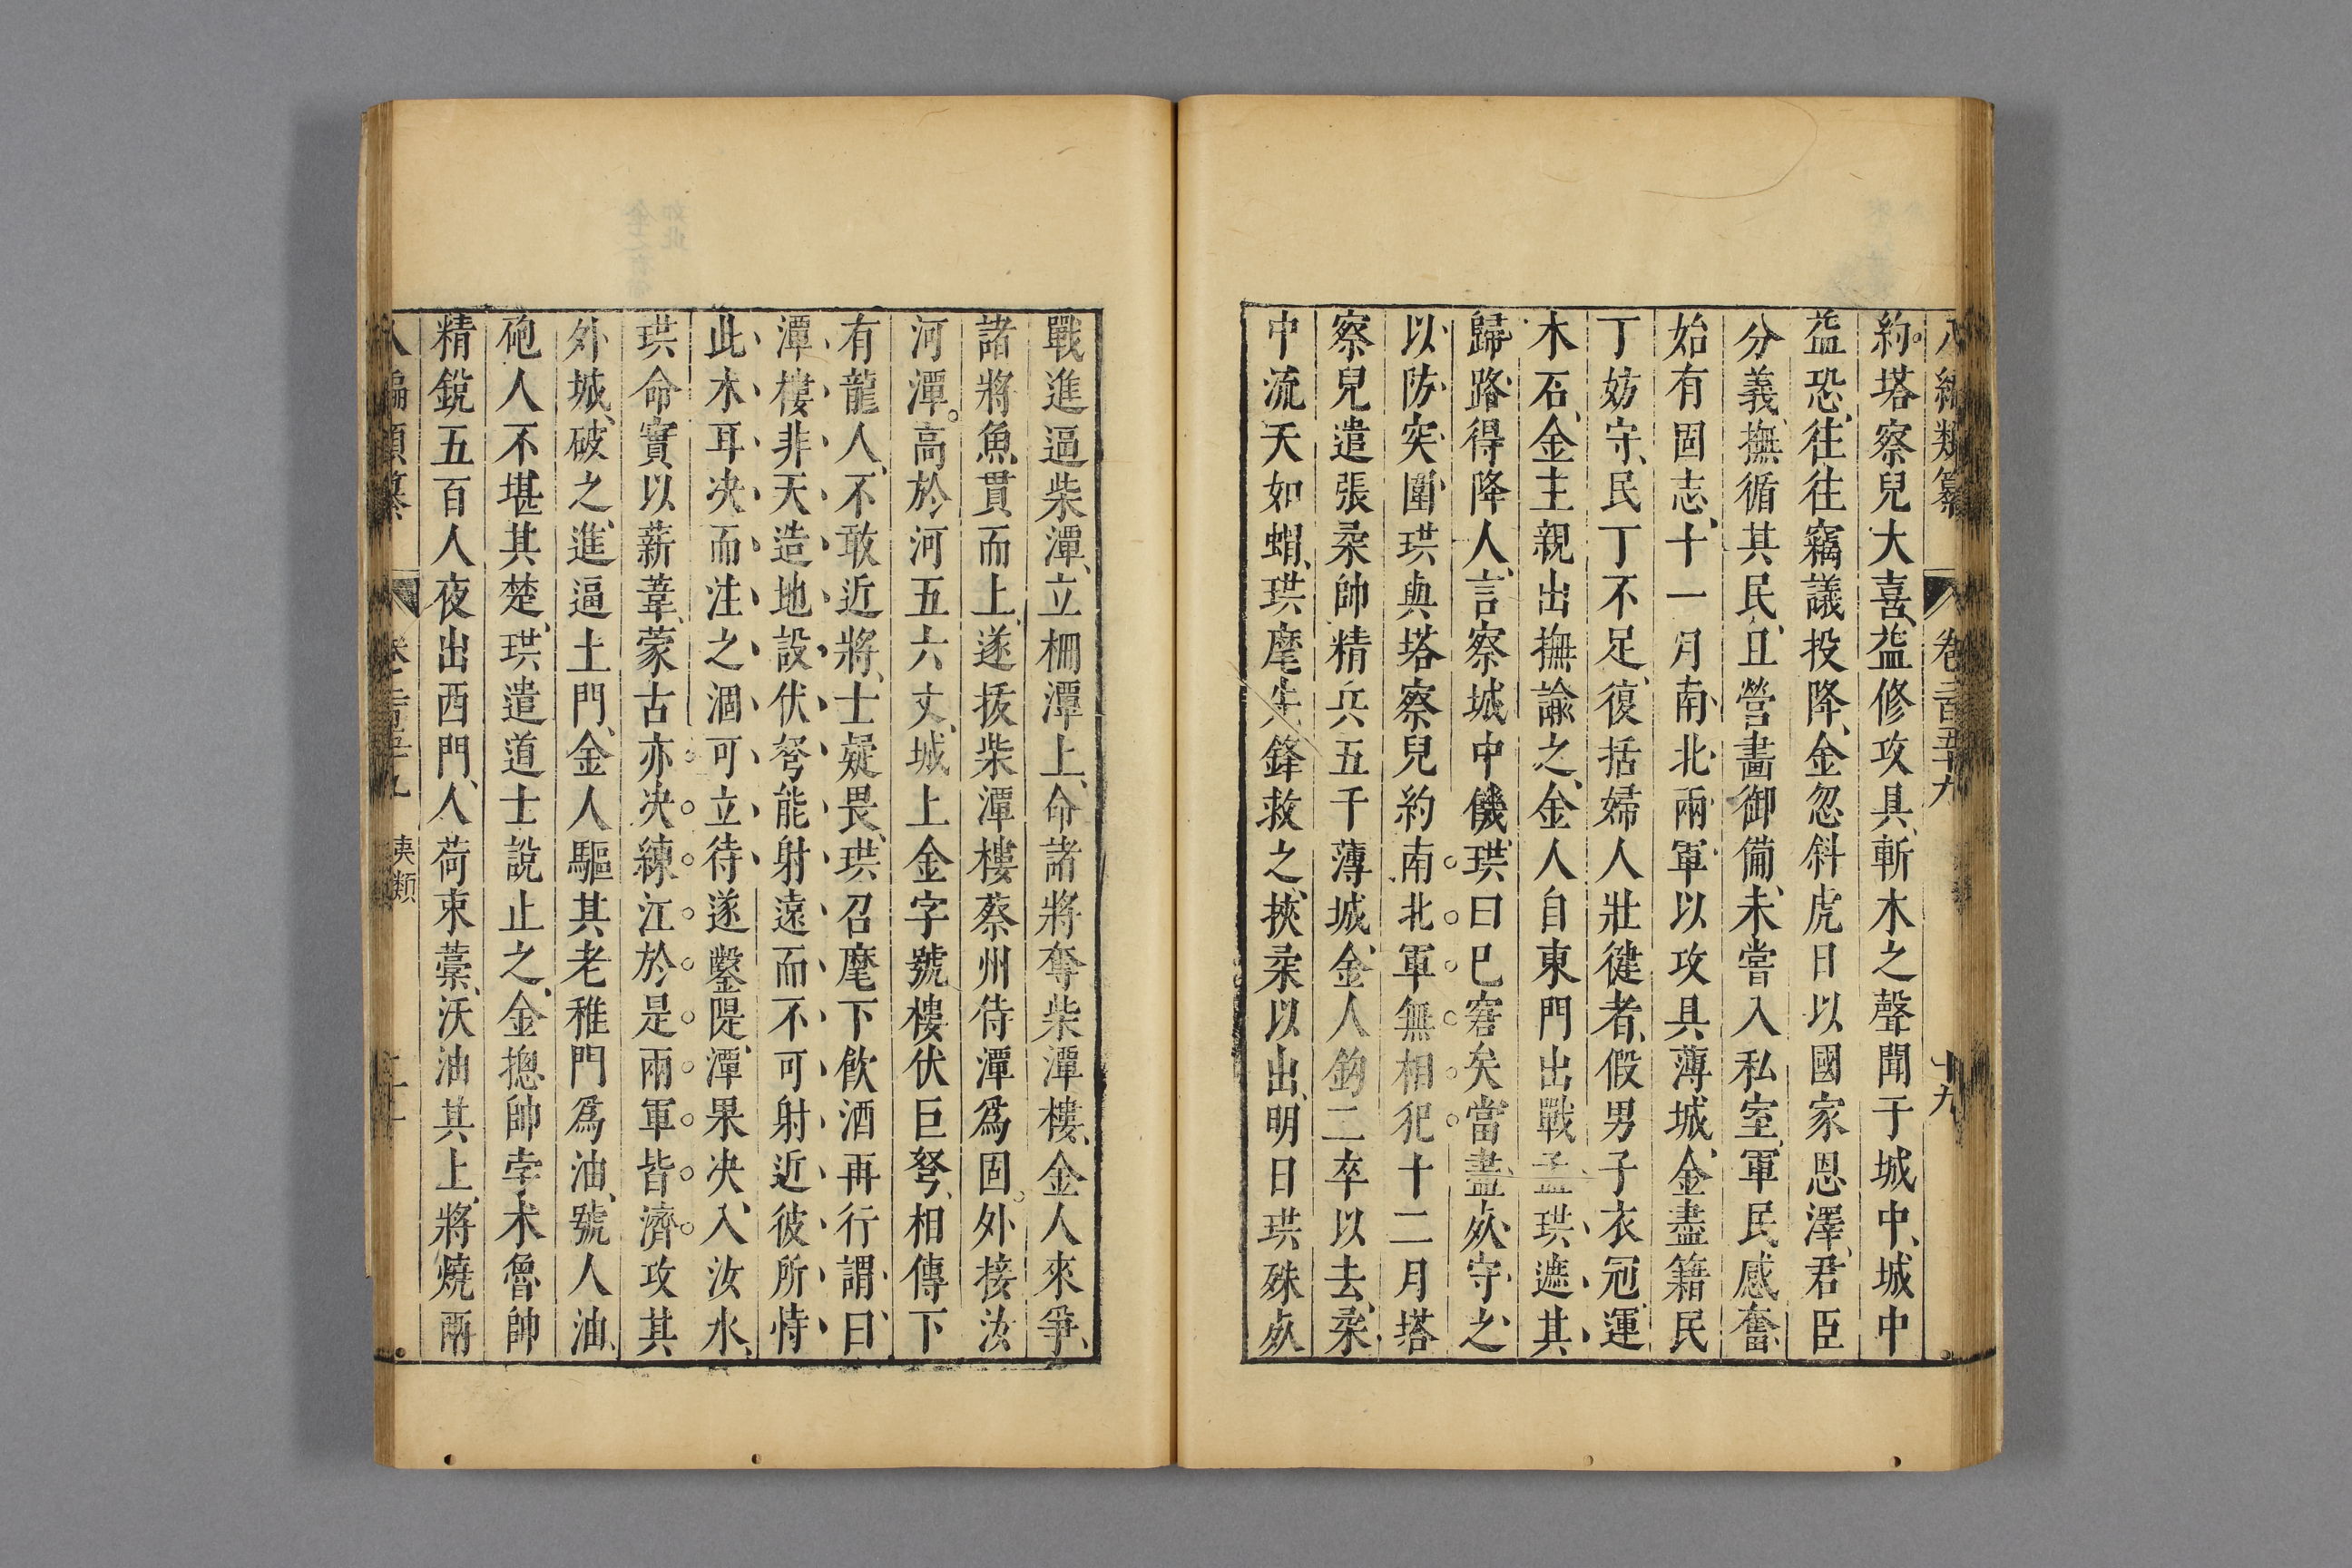 八編類纂 卷二百五十九 十九
約塔察兒大喜益修攻具斬木之聲聞于城中城中
益恐往往竊議投降金忽斜虎日以國家恩澤君臣
分義撫循其民且營畫御備未嘗入私室軍民感奮
始有固志十一月南北兩軍以攻具薄城金盡籍民
丁妨守民丁不足復括婦人壯健者假男子衣冠運
木石金主親出撫諭之金人自東門出戰孟珙遮其
歸路得降人言察城中饑珙曰已窘矣當盡死守之
以防突圍珙與塔察兒約南北軍無相犯十二月塔
察兒遣張柔帥精兵五千薄城金人鈎二卒以去柔
中流矢如蝟珙麾先鋒救之挾柔以出明日珙殊死
戰進逼柴潭立柵潭上命諸將奪柴潭樓金人來爭
諸將魚貫而上遂拔柴潭樓蔡州侍潭爲固外接汝
河潭高於河五六丈城上金字號樓伏巨弩相傳下
有龍人不敢近將士疑畏珙召麾下飲酒再行謂曰
潭樓非天造地設伏弩能射遠而不可射近彼所恃
此水耳决而注之涸可立待遂鑿隄潭果决入汝水
珙命實以薪葦蒙古亦决練江於是兩軍皆濟攻其
外城破之進逼土門金人驅其老稚門爲油號人油
砲人不堪其楚珙遣道士說止之金摠帥孛朮魯帥
精銳五百人夜出西門人荷束藁沃油其上將燒兩
八編類纂 夷類